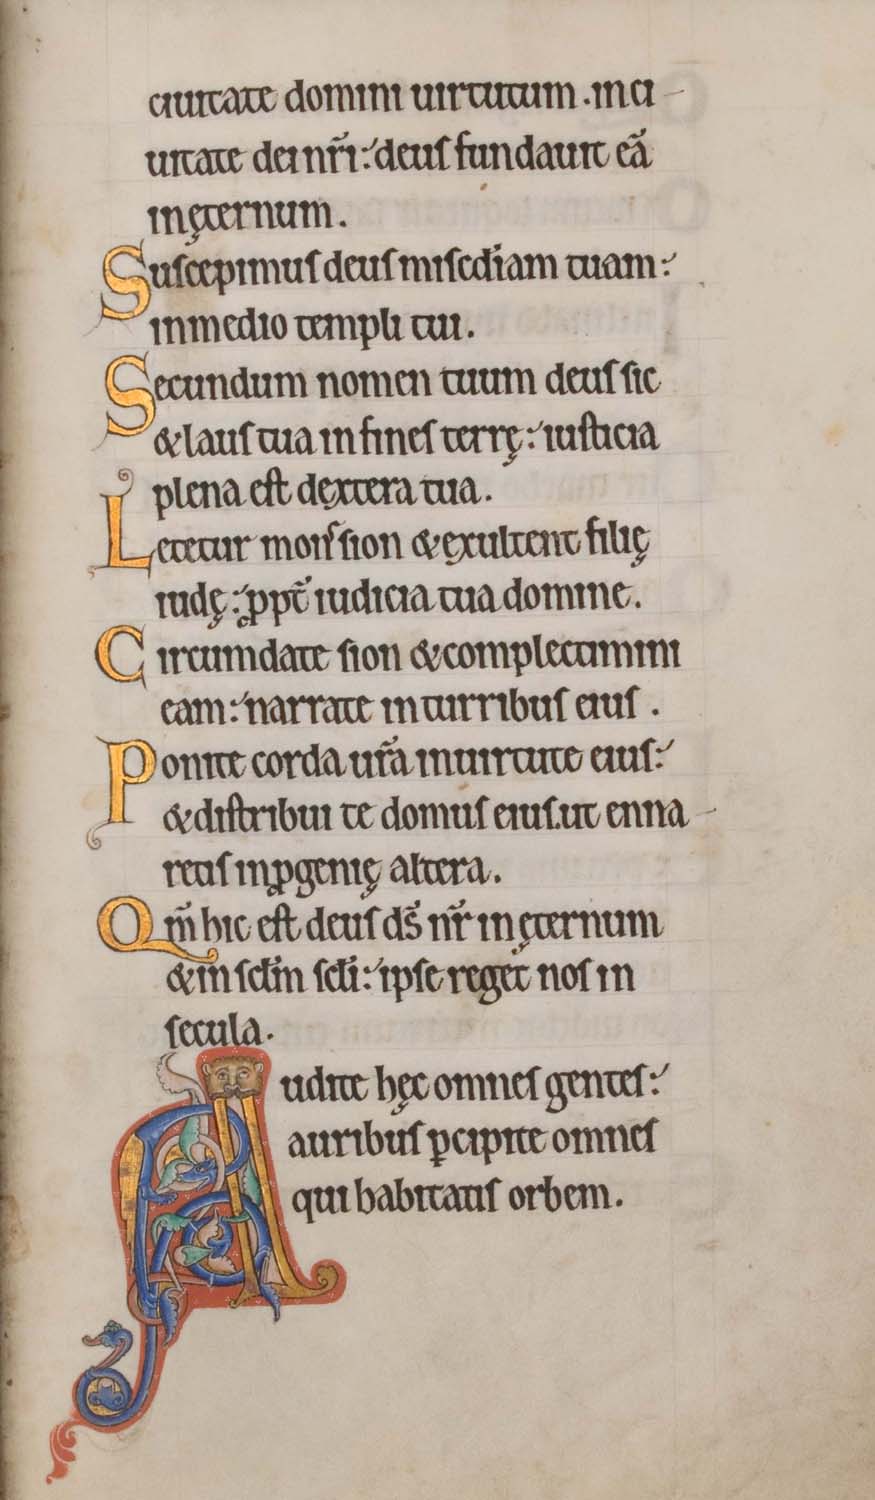 ciuitate domini uirtutum .in ci-
uitate dei nr̃i:deus fundauit eã
in ęternum.
Suscepimus deus misc̃diam tuam:
in medio templi tui.
Secundum nomen tuum deus sic
& laus tua in fines terrę: iusticia
plena est dextera tua.
Letetur mons sion & exultent filię
iudę: ꝓpt̃ iudicia tua domine.
Circumdate sion & complectimini
eam: narrate in turribus eius .
Ponite corda ur̃a in uirtute eius:
& distribui te domus eius.ut enna-
retis in ꝓgenię altera.
Qm̃ hic est deus ds̃ nr̃ in ęternum
& in sclm̃ scli̇: ipse reget nos in
secula.
Audite hęc omnes gentes:
auribus ꝑcipite omnes
qui habitatis orbem.